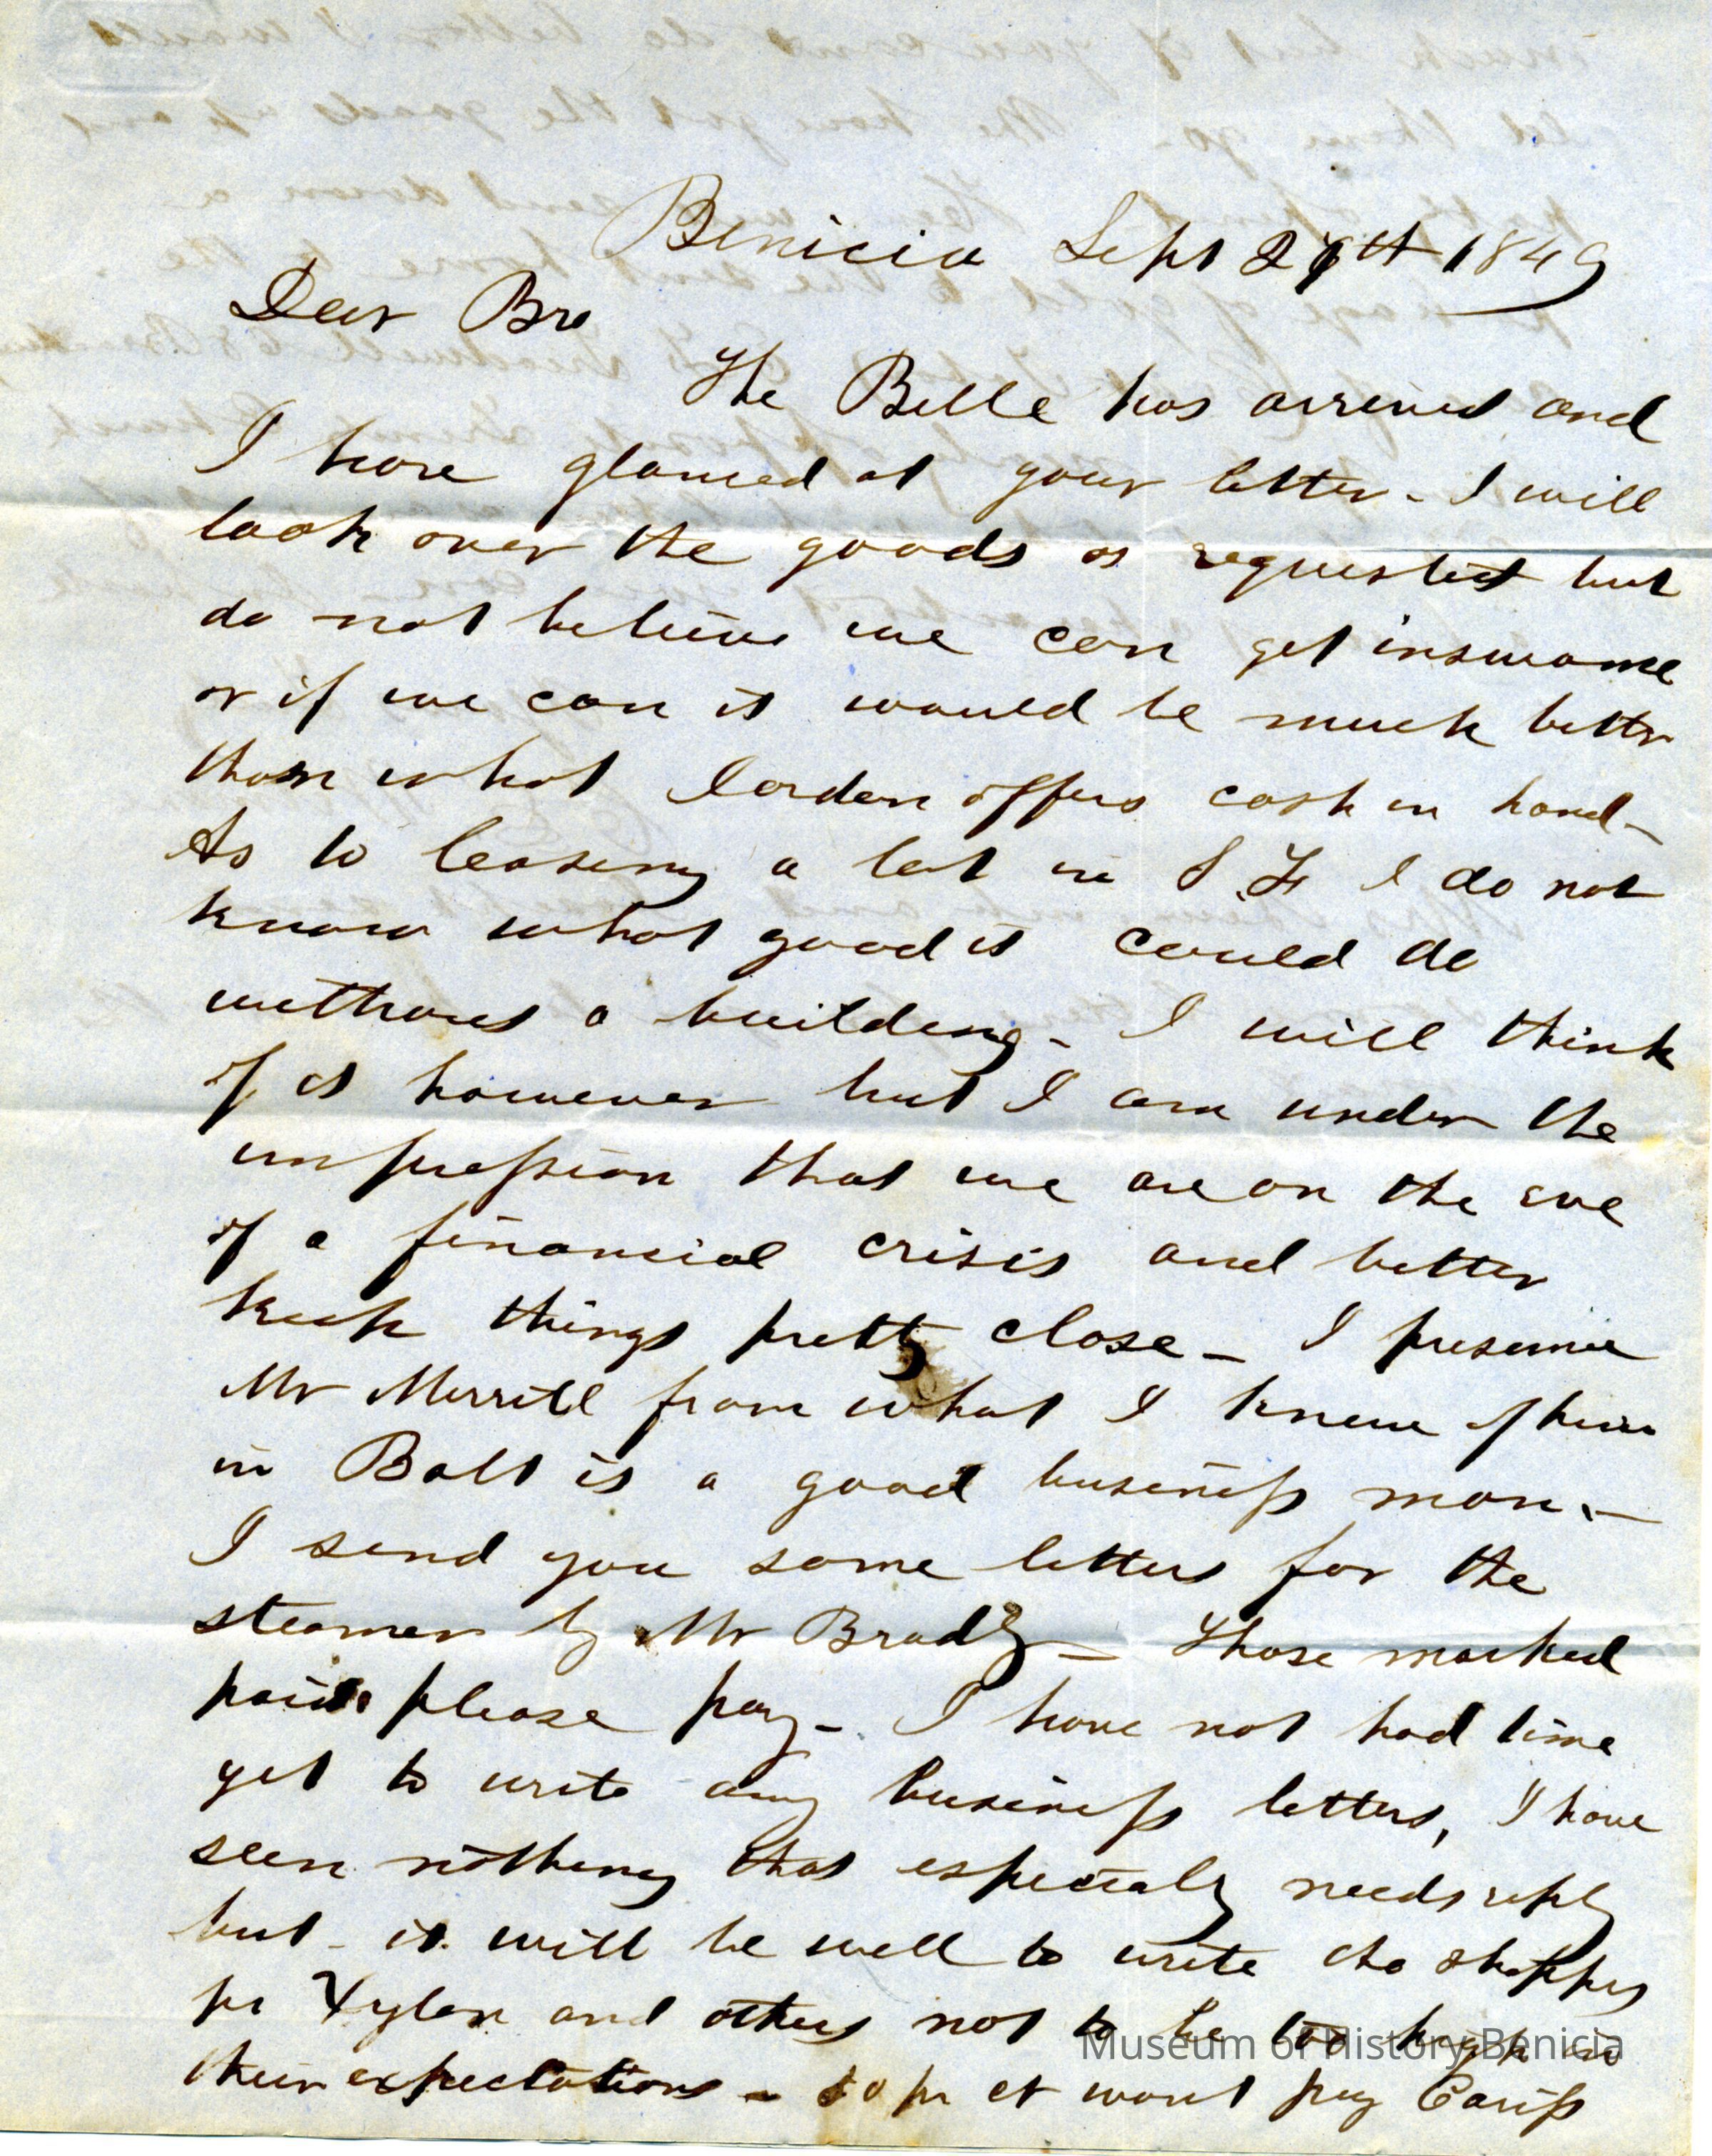 Benicia Sept 27th 1849
Dear Bro
The Belle has arrived and
I have glanced at your letter - I will
look over the goods as requested but
do not believe we can get insurance
or if we can it would be much better
than what offers cash in hand -
As to leasing a lot in S.F. I do not
know what good it could do
without a building - I will think
of it however but I am under the
impression that we are on the eve
of a financial crisis and better
keep things pretty close - I presume
Mr Merrill from what I knew of him
in Balt is a good business man. -
I send you some letters for the
steamer by Mr Brady - Those marked
paid please pay - I have not had time
yet to write any business letters, I have
seen nothing that especialy needs reply
but - it will be well to write the shippers
pr Xylon and others not to be too high in
their expectations - 50 pr ct wont pay
Museum of History Benicia